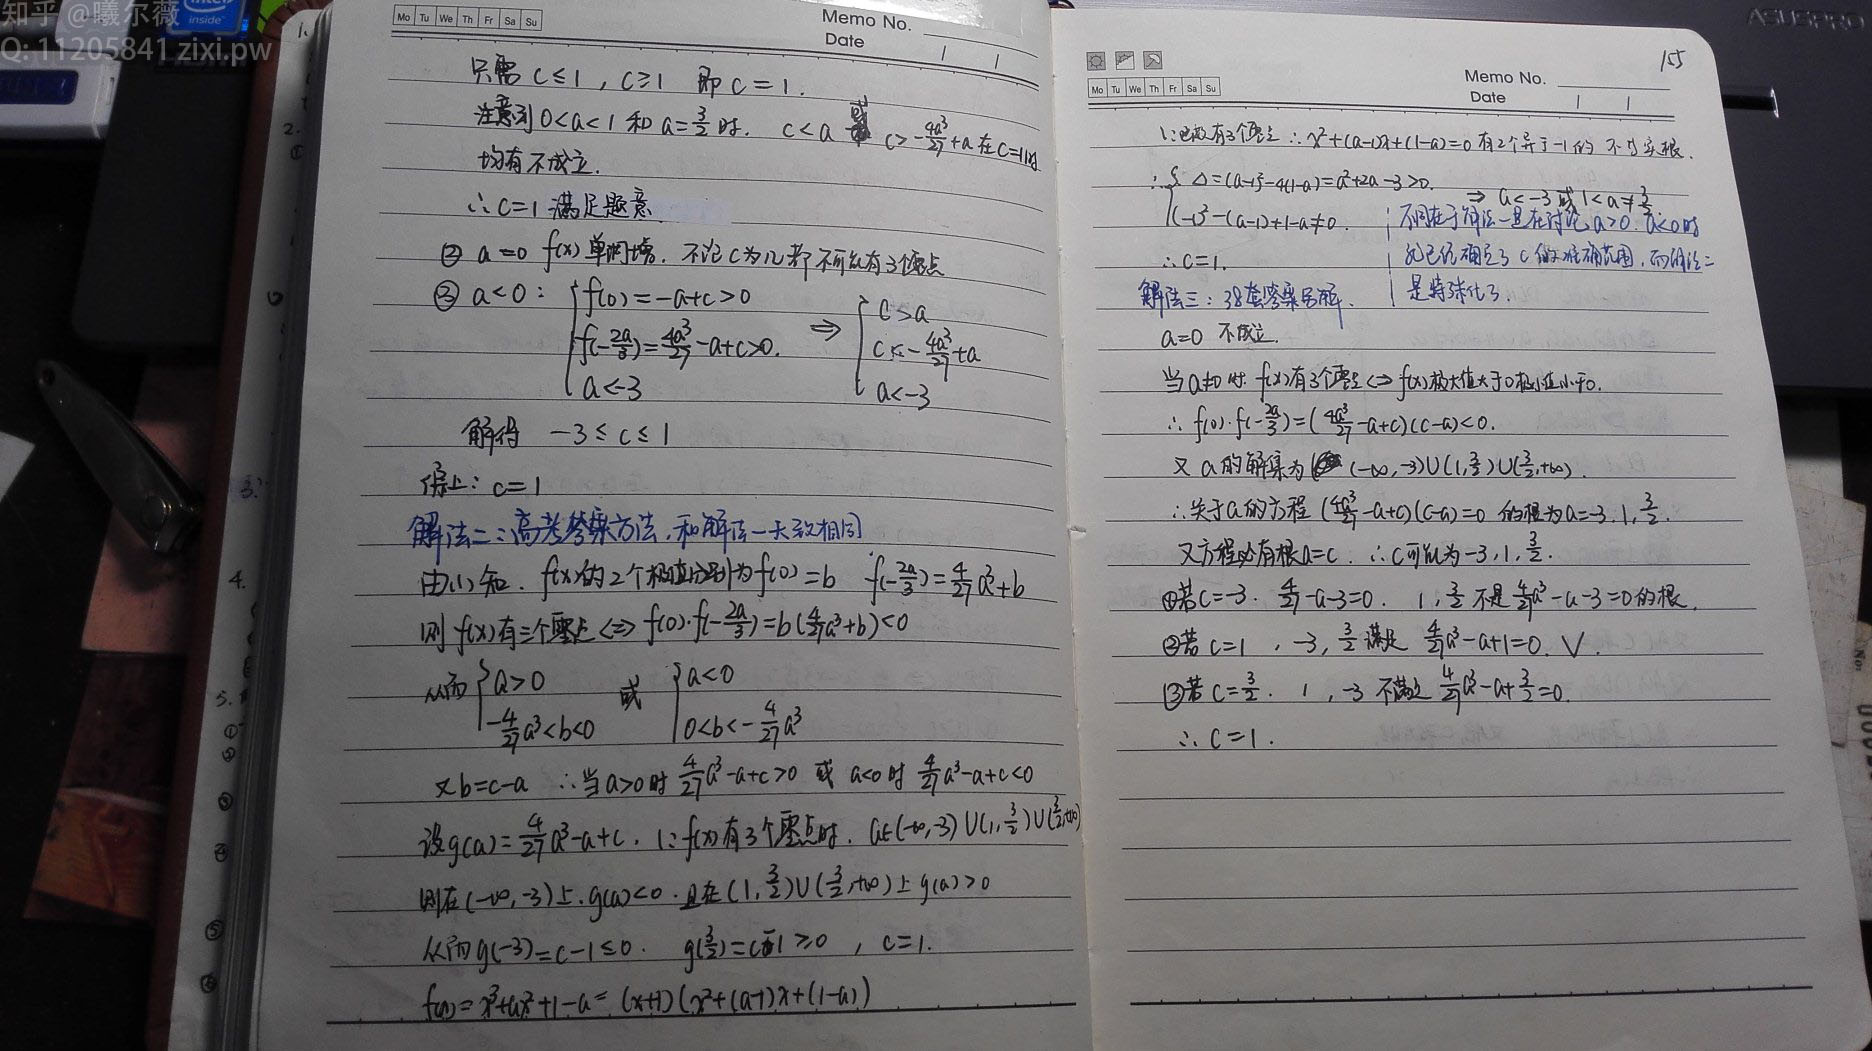 知乎 @曦尔薇
Q: 11205841 zixi.pw
intel
inside
ASUSPRO
Mo Tu We Th Fr Sa Su
Memo No.
Date
只需 c≤1, c≥1 即 c=1.
注意到 0<a<1 和 a=3/2 时. c<a 或 c>-4a³/27+a 在 c=1时
均有不成立.
∴ c=1 满足题意
② a=0 f(x) 单调增. 不论 c 为几都不可能有3个零点
③ a<0: { f(0)=-a+c>0
f(-2a/3)=4a³/27-a+c>0.
a<-3
⇒ { c>a
c<-4a³/27+a
a<-3
解得 -3≤c≤1
综上: c=1
解法二: 高考答案方法, 和解法一大致相同
由(1)知. f(x)的2个极值分别为 f(0)=b f(-2a/3)=4/27a³+b
则 f(x)有三个零点 <=> f(0)·f(-2a/3)=b(4/27a³+b)<0
从而 { a>0
-4/27a³<b<0
或 { a<0
0<b<-4/27a³
又 b=c-a ∴当a>0时 4/27a³-a+c>0 或 a<0时 4/27a³-a+c<0
设g(a)=4/27a³-a+c. ∵f(x)有3个零点时. a∈(-∞,-3)∪(1,3/2)∪(3/2,+∞)
则在(-∞,-3)上.g(a)<0.且在(1,3/2)∪(3/2,+∞)上g(a)>0
从而g(-3)=c-1≤0. g(3/2)=c-1≥0, c=1.
f(x)=x³+ax²+1-a=(x+1)(x²+(a-1)x+(1-a))
155
Mo Tu We Th Fr Sa Su
Memo No.
Date
有3个零点 ∴x²+(a-1)x+(1-a)=0 有2个异于-1的 不等实根.
∴ { Δ=(a-1)²-4(1-a)=a²+2a-3>0.
(-1)²-(a-1)+1-a≠0.
⇒ a<-3 或 1<a≠3/2
∴ c=1.
不同在于解法一是在讨论 a>0. a<0时
就已经确定了 c 的准确范围, 而解法二
是特殊化了.
解法三: 38套答案另解.
a=0 不成立.
当a≠0时 f(x)有3个零点<=>f(x)极大值大于0极小值小于0.
∴ f(0)·f(-2a/3)=(4a³/27-a+c)(c-a)<0.
又 a的解集为 (-∞,-3)∪(1,3/2)∪(3/2,+∞).
∴关于a的方程 (4a³/27-a+c)(c-a)=0 的根为a=-3,1,3/2.
又方程必有根a=c. ∴c可能为-3,1,3/2.
①若c=-3. 4/27-a-3=0. 1,3/2不是4/27a³-a-3=0的根.
②若 c=1, -3,3/2 满足 4/27a³-a+1=0. √.
③若 c=3/2. 1,-3 不满足 4/27a³-a+3/2=0.
∴ c=1.